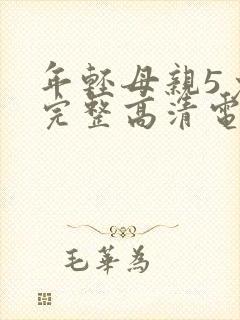 年輕母親5
完整高清電
毛華為